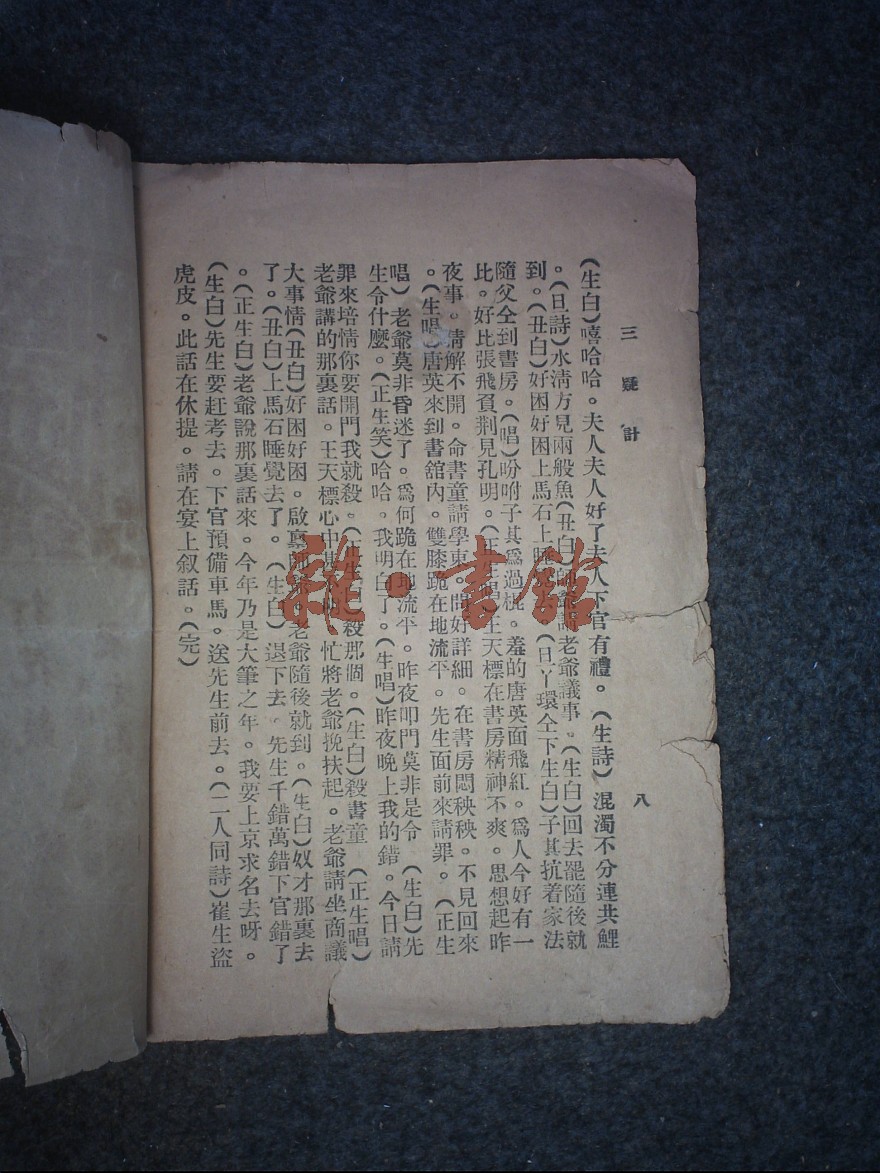 三疑計
八
(生白)嘻哈哈。夫人夫人好了夫人下官有禮。(生詩)混濁不分連共鯉
。(旦詩)水清方見兩般魚(丑白)老爺議事。(生白)回去罷隨後就
到。(丑白)好困好困上馬石上睡(旦丫環仝下生白)子其抗着家法
隨父仝到書房。(唱)吩咐子其爲過桃。羞的唐英面飛紅。爲人今好有一
比。好比張飛負荆見孔明。(正生唱)王天標在書房精神不爽。思想起昨
夜事。猜解不開。命書童請學東。問好詳細。在書房悶秧秧。不見回來
。(生唱)唐英來到書舘內。雙膝跪在地流平。先生面前來請罪。(正生
唱)老爺莫非昏迷了。爲何跪在地流平。昨夜叩門莫非是令(生白)先
生令什麼。(正生笑)哈哈。我明白了。(生唱)昨夜晚上我的錯。今日請
罪來培情你要開門我就殺。(正生白)殺那個。(生白)殺書童(正生唱)
老爺講的那裏話。王天標心中忙將老爺挽扶起。老爺請坐商議
大事情(丑白)好困好困。啟稟老爺隨後就到。(生白)奴才那裏去
了。(丑白)上馬石睡覺去了。(生白)退下去。先生千錯萬錯下官錯了
。(正生白)老爺說那裏話來。今年乃是大筆之年。我要上京求名去呀。
(生白)先生要赶考去。下官預備車馬。送先生前去。(二人同詩)崔生盜
虎皮。此話在休提。請在宴上叙話。(完)
雜·書館